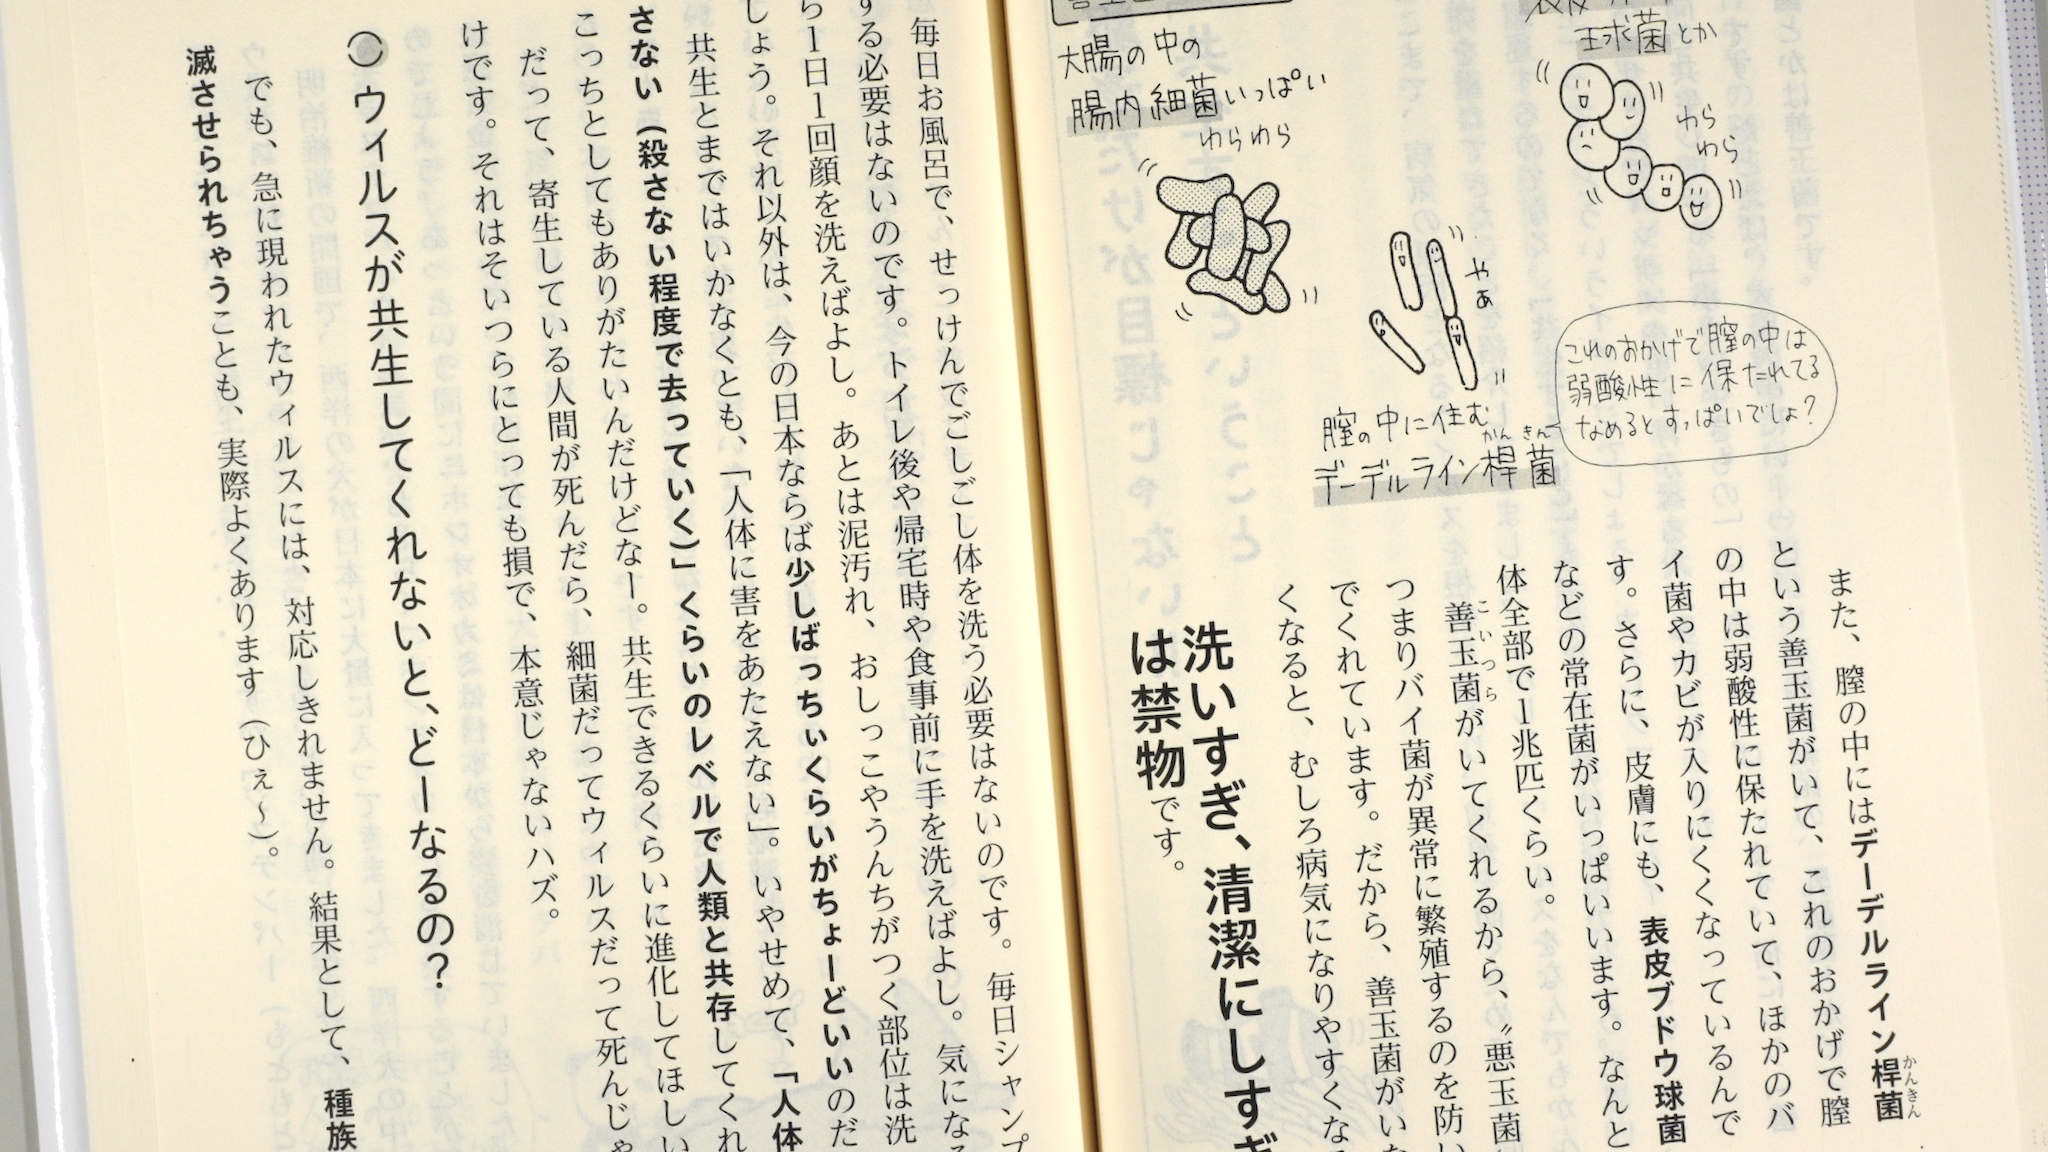 球菌とか
わら
わら
大腸の中の
腸内細菌いっぱい
わらわら
やぁ
これのおかげで膣の中は
弱酸性に保たれてる
なめるとすっぱいでしょ?
膣の中に住む
デーデルライン桿菌
かんきん
また、膣の中にはデーデルライン桿菌
かんきん
という善玉菌がいて、これのおかげで膣
の中は弱酸性に保たれていて、ほかのバ
イ菌やカビが入りにくくなっているんで
す。さらに、皮膚にも、表皮ブドウ球菌
などの常在菌がいっぱいいます。なんと
体全部で1兆匹くらい。
善玉菌がいてくれるから、〝悪玉菌
こいつら
つまりバイ菌が異常に繁殖するのを防い
でくれています。だから、善玉菌がいな
くなると、むしろ病気になりやすくなる
洗いすぎ、清潔にしすぎ
は禁物です。
毎日お風呂で、せっけんでごしごし体を洗う必要はないのです。毎日シャンプ
する必要はないのです。トイレ後や帰宅時や食事前に手を洗えばよし。気になる
ら1日1回顔を洗えばよし。あとは泥汚れ、おしっこやうんちがつく部位は洗
しょう。それ以外は、今の日本ならば少しばっちぃくらいがちょーどいいのだ
共生とまではいかなくとも、「人体に害をあたえない」。いやせめて、「人体
さない(殺さない程度で去っていく)」くらいのレベルで人類と共存してくれ
こっちとしてもありがたいんだけどなー。共生できるくらいに進化してほしい
だって、寄生している人間が死んだら、細菌だってウィルスだって死んじゃ
けです。それはそいつらにとっても損で、本意じゃないハズ。
○ウィルスが共生してくれないと、どーなるの?
でも、急に現われたウィルスには、対応しきれません。結果として、種族
滅させられちゃうことも、実際よくあります(ひぇ〜)。